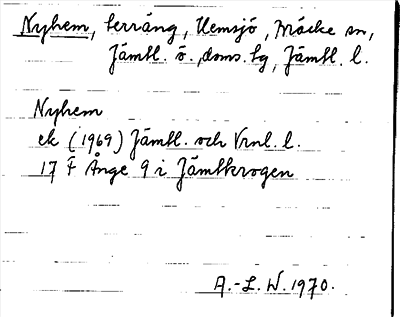 Nyhem, terräng, Hemsjö, Bräcke sn,
Jämtl. ö., doms. tg, Jämtl. l.
Nyhem
ek (1969) Jämtl. och Vrnl. l.
17 F Ånge 9 i Jämtkrogen
A.-L. W. 1970.